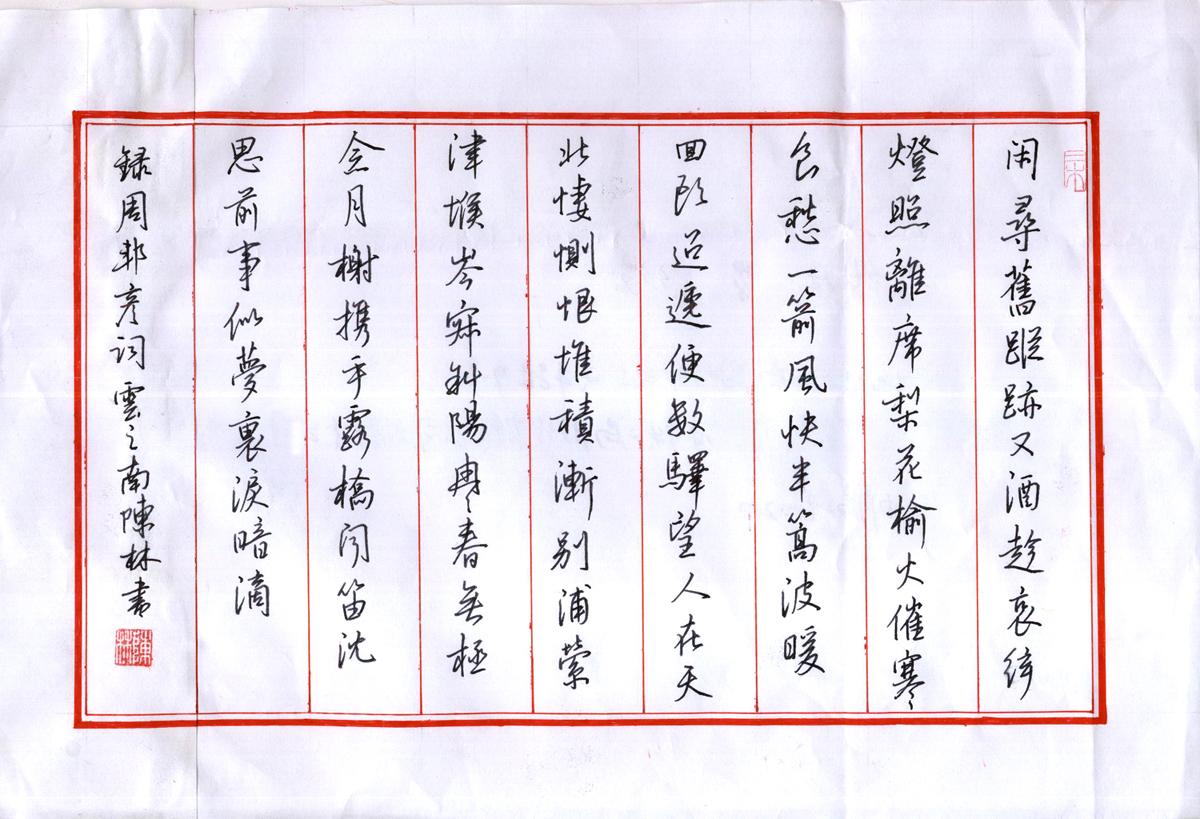 闲尋舊蹤跡又酒趁哀絃
燈照離席梨花榆火催寒
食愁一箭風快半篙波暖
回頭迢遞便數驛望人在天
北悽惻恨堆積漸别浦縈
津堠岑寂斜陽冉々春無極
念月榭携手露橋闻笛沈
思前事似夢裏淚暗滴
録周邦彦词雲之南陳林書
陳林